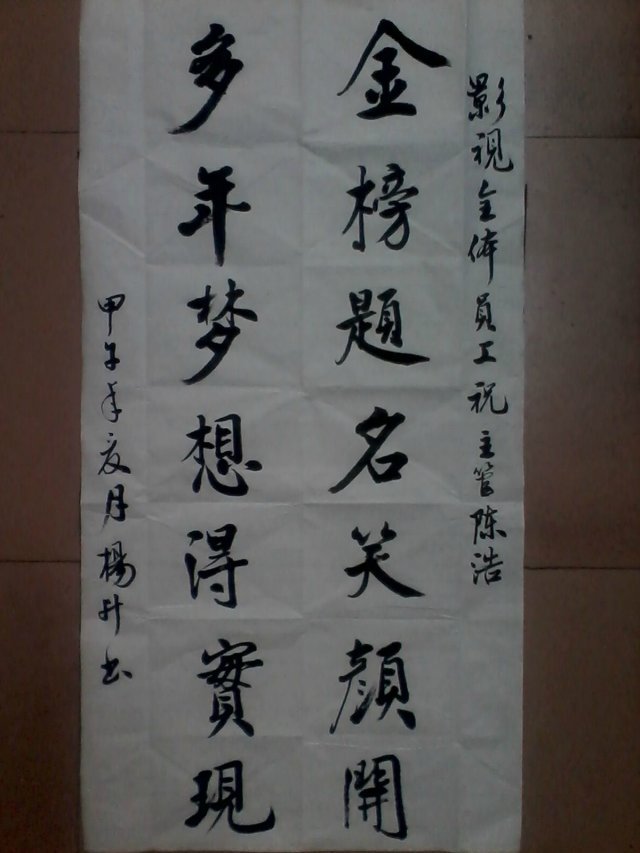 影視全体員工祝主管陈浩
金榜題名笑顔開
多年梦想得實現
甲子年夏月楊升书